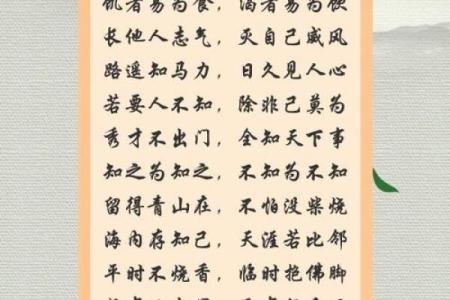 饥者易为食，渴者易为饮
长他人志气，灭自己威风
路遥知马力，日久见人心
若要人不知，除非己莫为
秀才不出门，全知天下事
知之为知之，不知为不知
留得青山在，不怕没柴烧
海内存知己，天涯若比邻
平时不烧香，临时抱佛脚